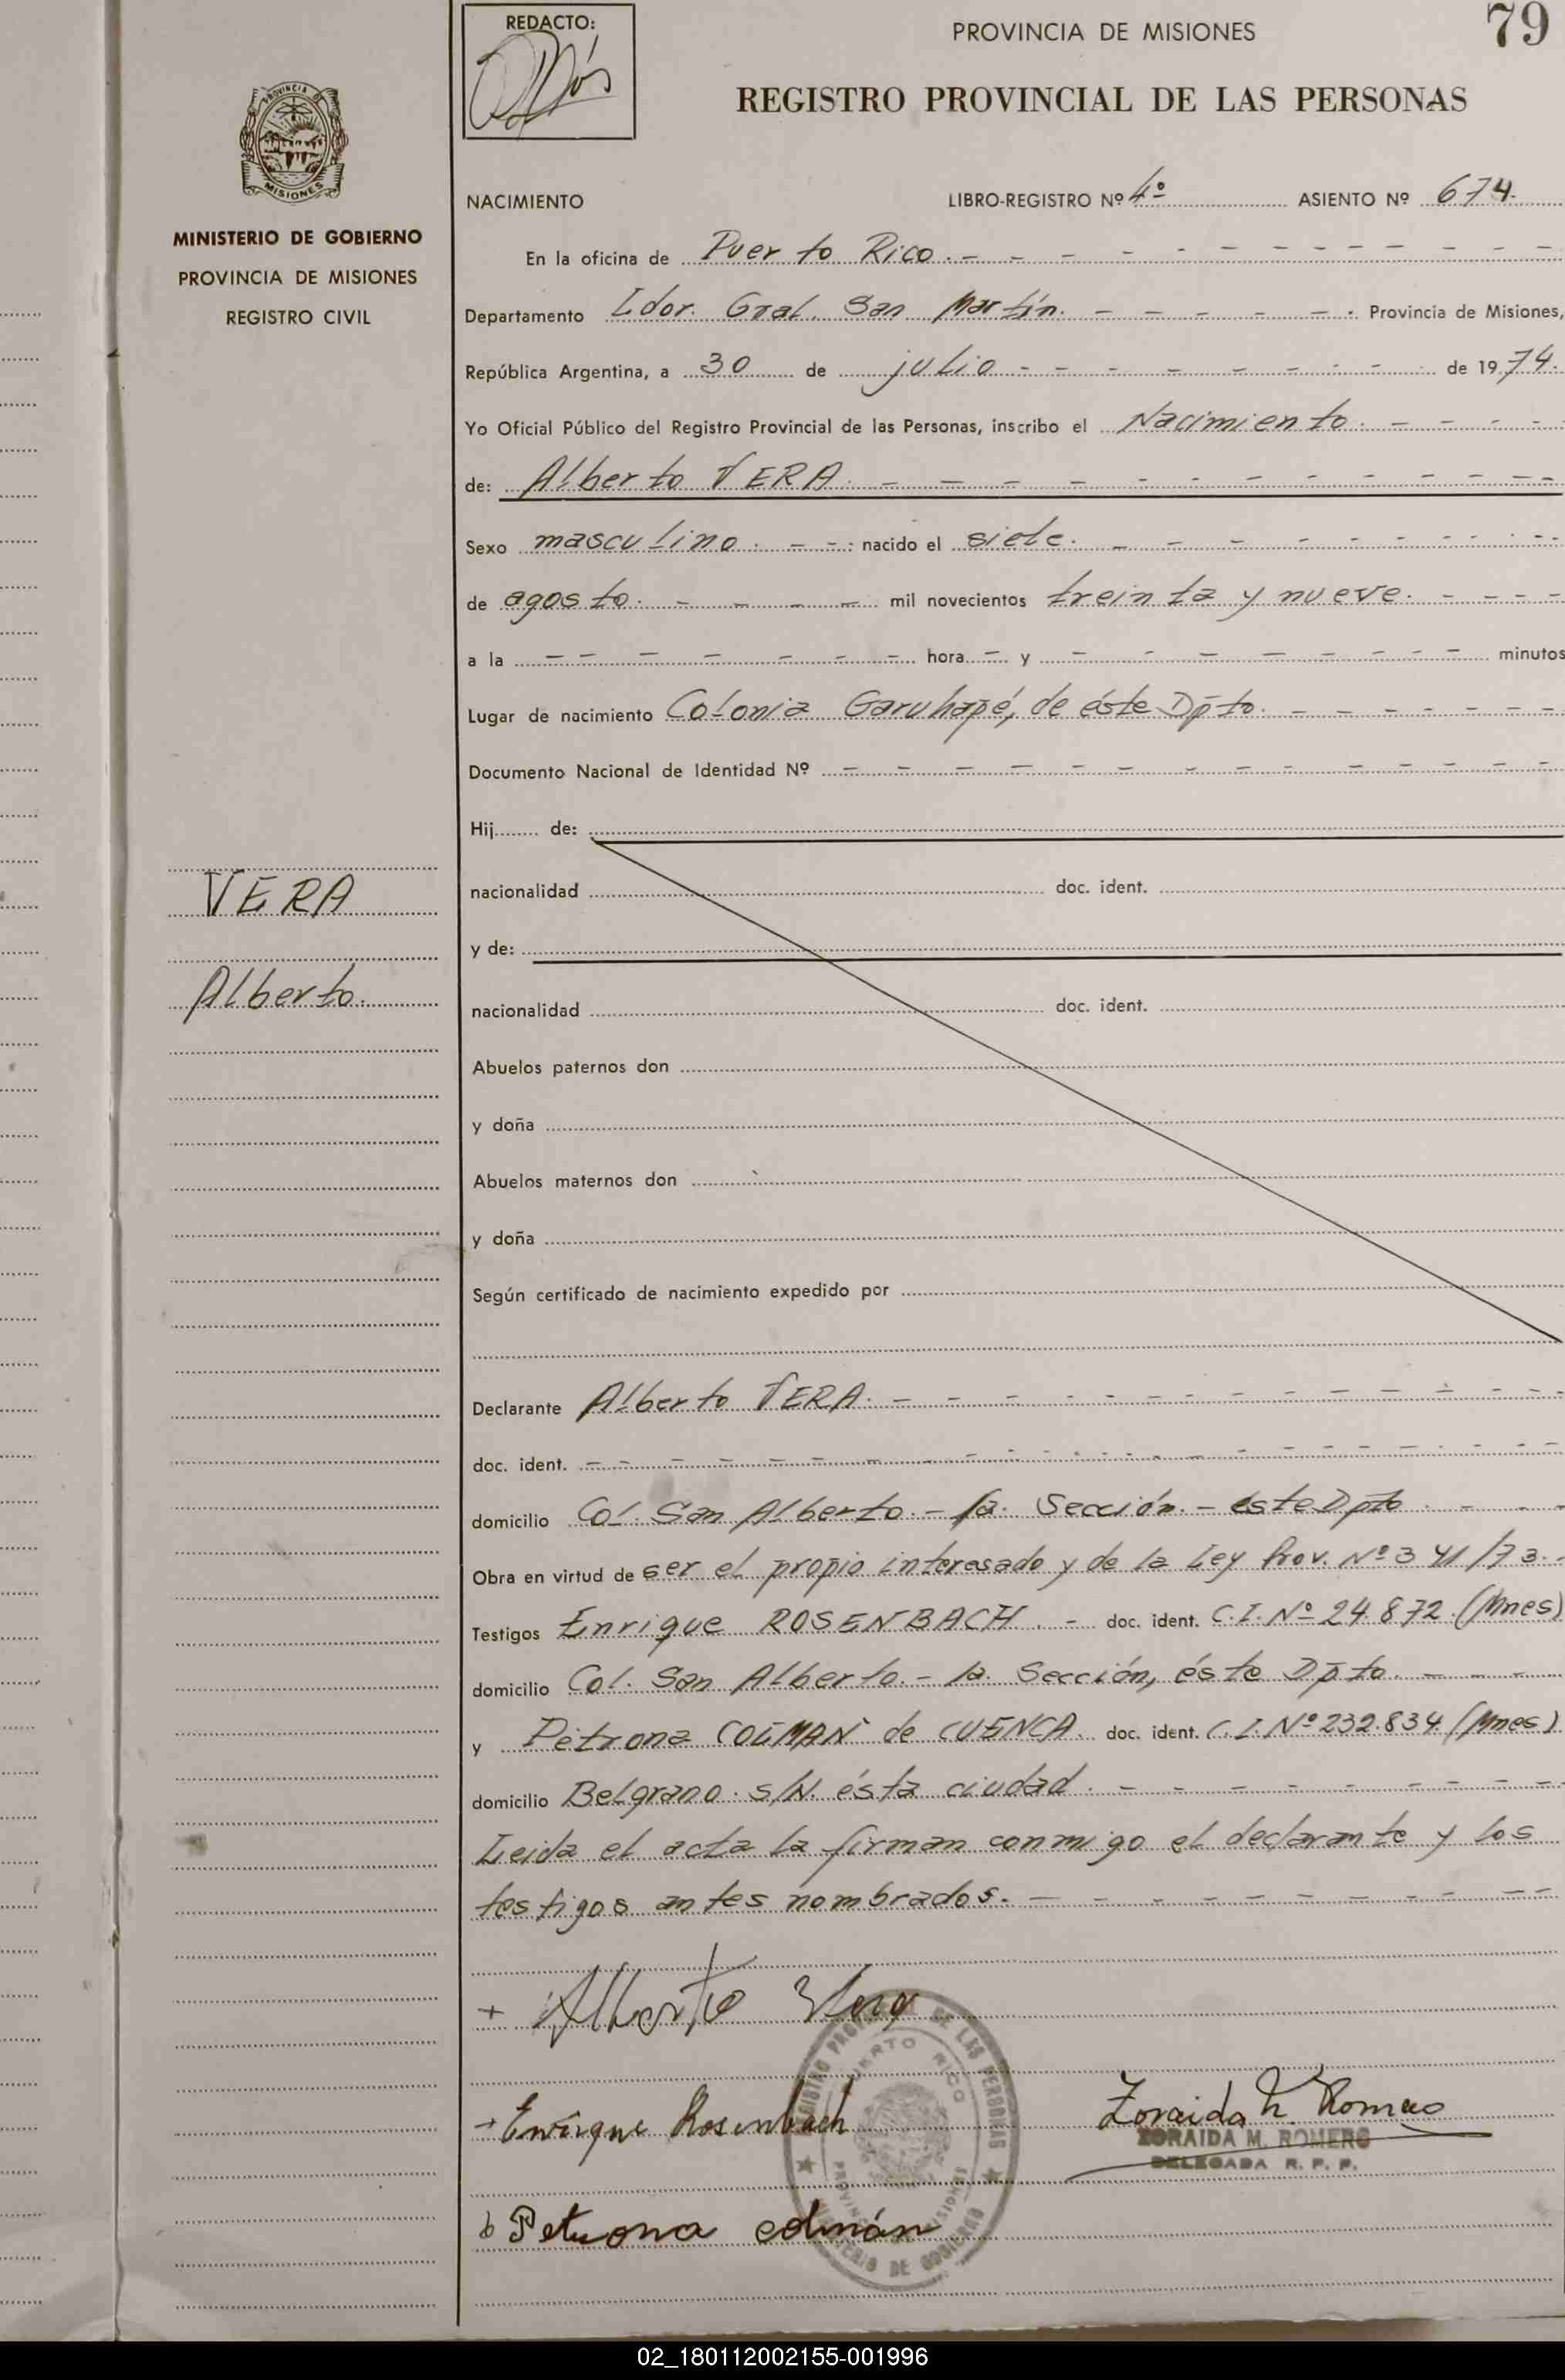 REDACTO:
PROVINCIA DE MISIONES
79
REGISTRO PROVINCIAL DE LAS PERSONAS
PROVINCIA D
MISIONES
MINISTERIO DE GOBIERNO
PROVINCIA DE MISIONES
REGISTRO CIVIL
NACIMIENTO LIBRO-REGISTRO Nº 4º ASIENTO Nº 674.
En la oficina de Puerto Rico. - - -
Departamento Ldor. Gral. San Martín. - - - . Provincia de Misiones,
República Argentina, a 30 de julio - - - de 1974.
Yo Oficial Público del Registro Provincial de las Personas, inscribo el Nacimiento. - - -
de: Alberto VERA. - - -
Sexo masculino. - - -: nacido el siete. - - -
de agosto. - - - mil novecientos treinta y nueve. - - -
a la - - - hora - y - - - minutos
Lugar de nacimiento Colonia Garuhapé, de éste Dpto. - - -
Documento Nacional de Identidad Nº - - -
Hij........ de:
nacionalidad doc. ident.
y de:
nacionalidad doc. ident.
Abuelos paternos don
y doña
Abuelos maternos don
y doña
Según certificado de nacimiento expedido por
VERA
Alberto.
Declarante Alberto VERA. - - -
doc. ident. - - -
domicilio Col. San Alberto. - 1a. Sección. - este Dpto. - - -
Obra en virtud de ser el propio interesado y de la Ley Prov. Nº 341/73. -
Testigos Enrique ROSENBACH. - doc. ident. C.I. Nº 24.872. (Mnes)
domicilio Col. San Alberto. - 1a. Sección, éste Dpto. - - -
y Petrona COLMAN de CUENCA. doc. ident. C.I. Nº 232.834 (Mnes)
domicilio Belgrano. s/N. ésta ciudad. - - -
Leida el acta la firman conmigo el declarante y los
testigos antes nombrados. - - -
+ Alberto Vera
Enrique Rosenbach
Zoraida M. Romero
ZORAIDA M. ROMERO
DELEGADA R. P. P.
Petrona Colmán
REGISTRO PROVINCIAL DE LAS PERSONAS
PUERTO RICO
PROVINCIA DE MISIONES
MINISTERIO DE GOBIERNO
02_180112002155-001996